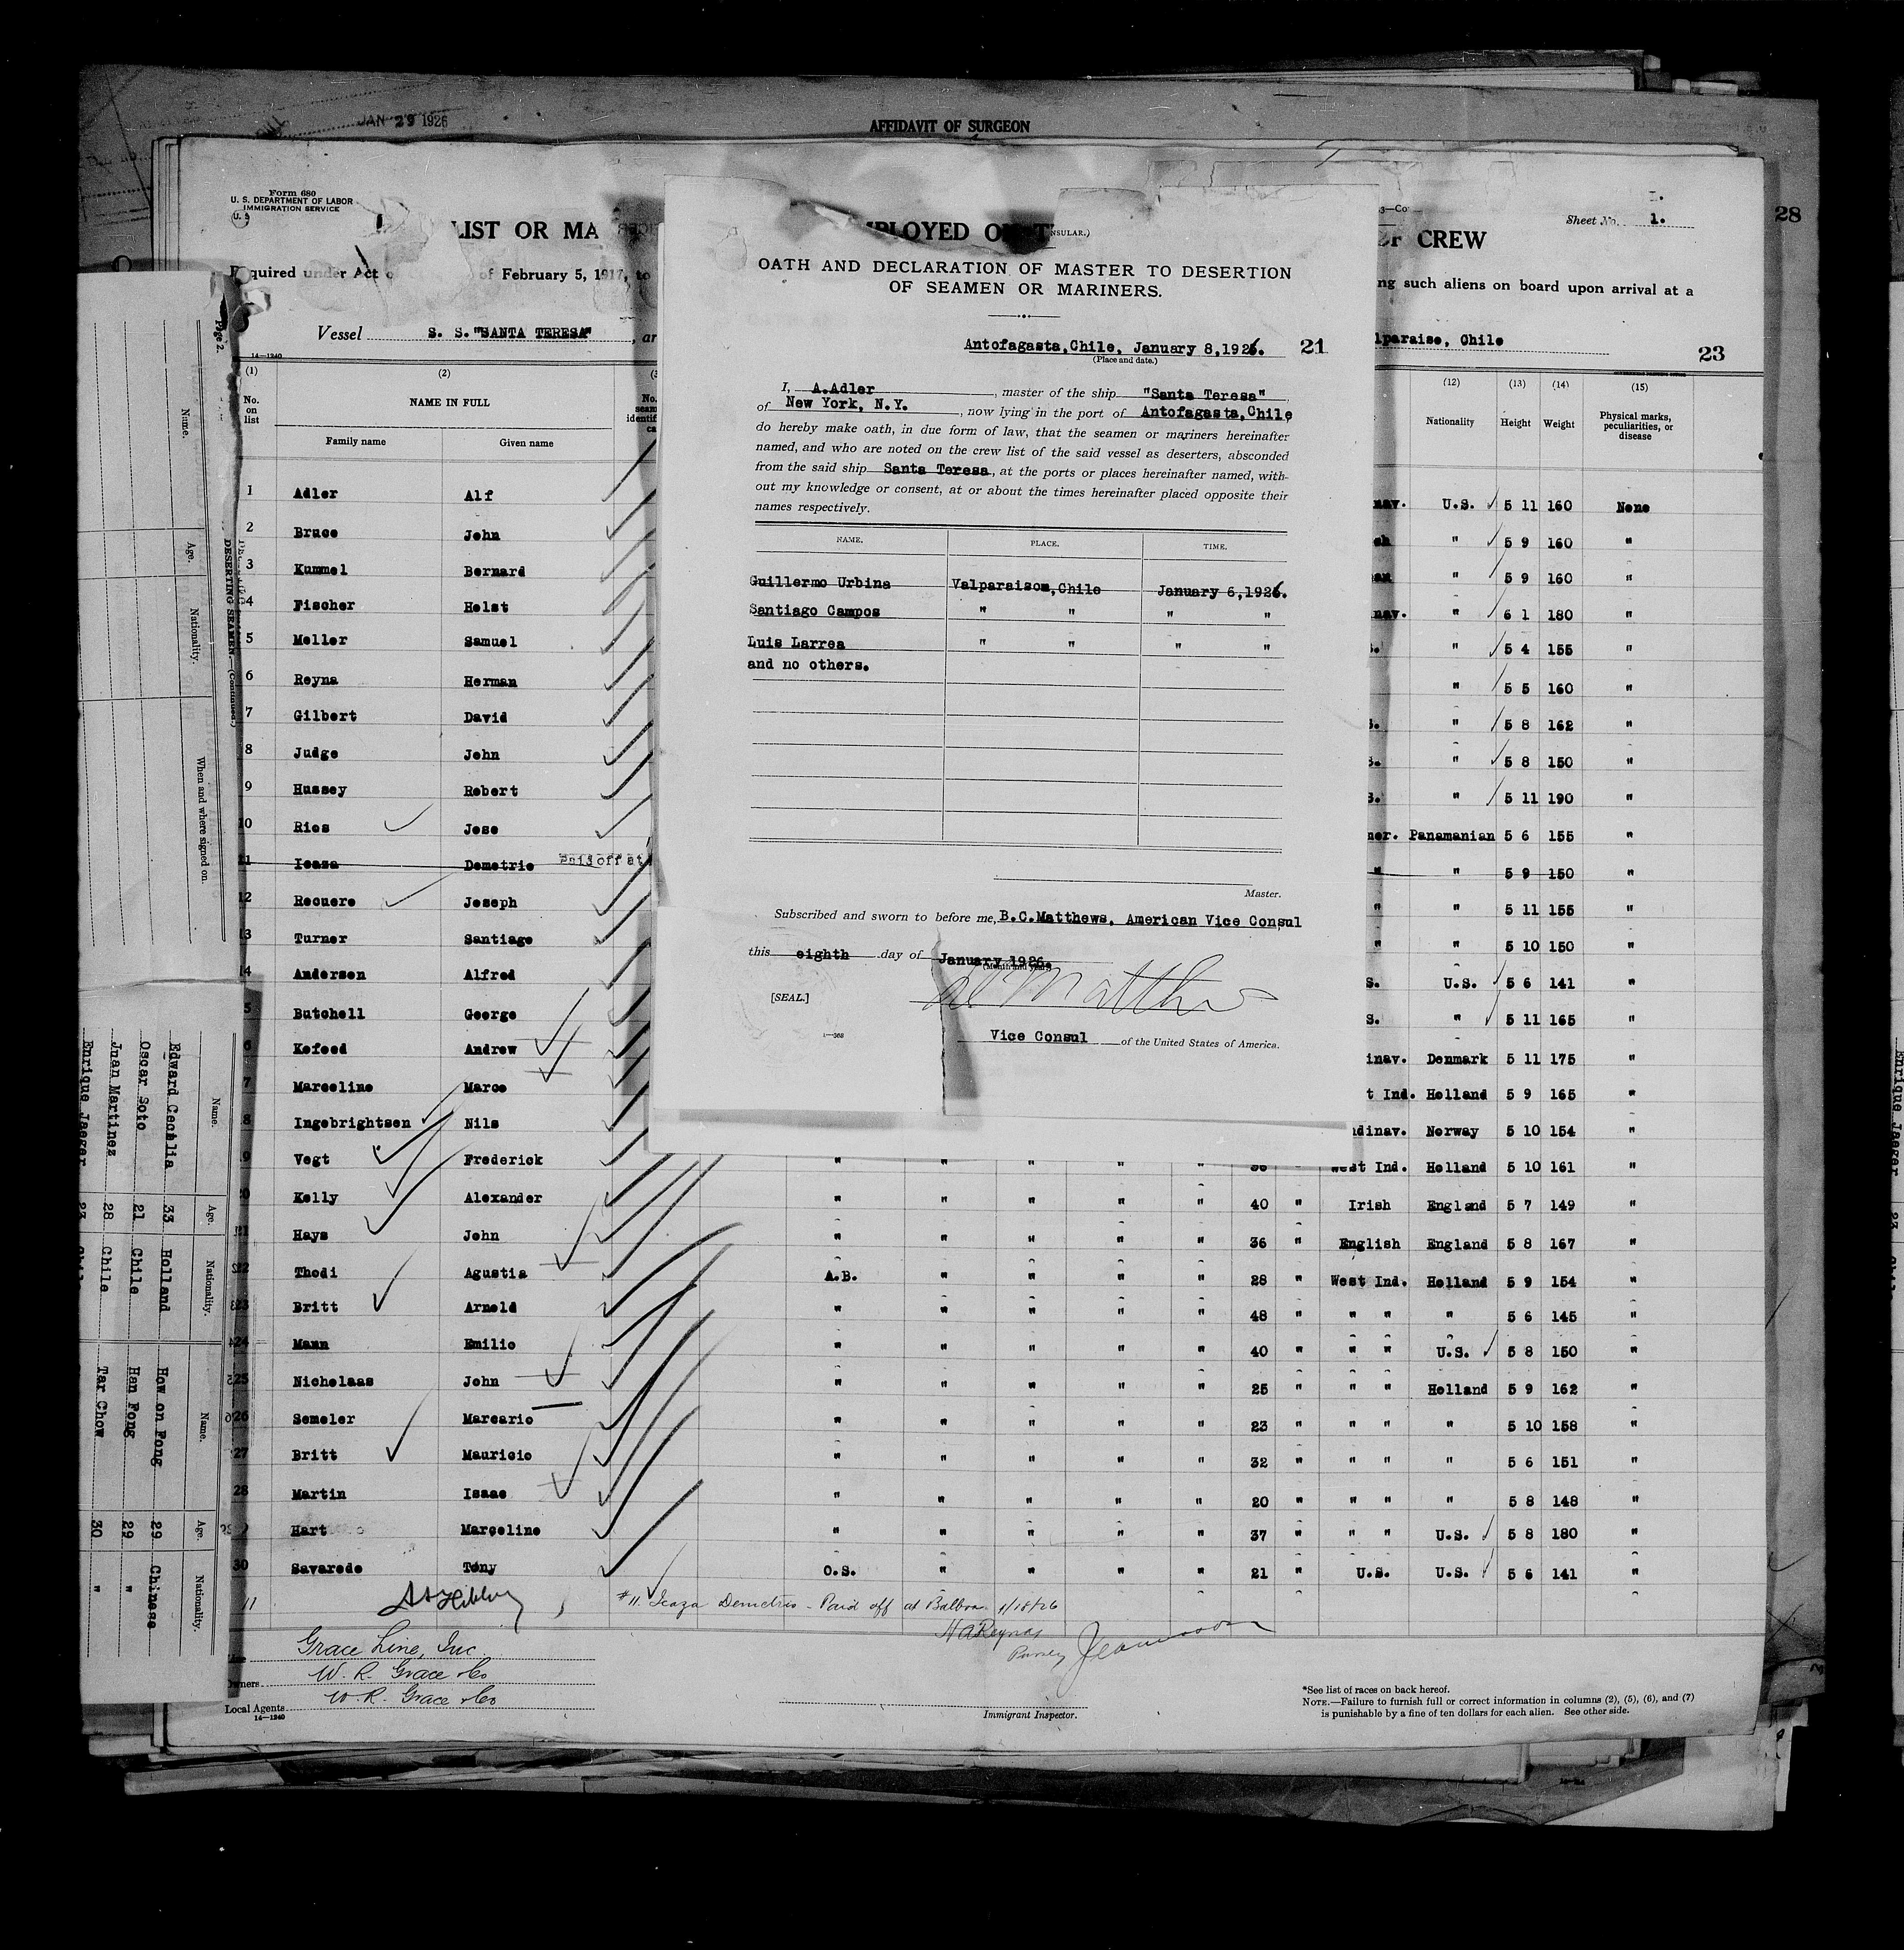 JAN 29 1926
AFFIDAVIT OF SURGEON
28
Form 680
U. S. DEPARTMENT OF LABOR
IMMIGRATION SERVICE
LIST OR MA
MPLOYED O
CREW
Sheet No. 1.
quired under Act of February 5, 1917, to
ng such aliens on board upon arrival at a
Vessel S. S. "SANTA TERESA", ar
lparaise, Chile
23
14—1240
(1) (2)
No. on list
NAME IN FULL
Family name Given name
(12) (13) (14) (15)
Nationality Height Weight Physical marks, peculiarities, or disease
NSULAR.)
OATH AND DECLARATION OF MASTER TO DESERTION
OF SEAMEN OR MARINERS.
Antofagasta, Chile, January 8, 1926. 21
(Place and date.)
I, A.Adler, master of the ship "Santa Teresa",
of New York, N.Y., now lying in the port of Antofagasta, Chile
do hereby make oath, in due form of law, that the seamen or mariners hereinafter
named, and who are noted on the crew list of the said vessel as deserters, absconded
from the said ship Santa Teresa, at the ports or places hereinafter named, with-
out my knowledge or consent, at or about the times hereinafter placed opposite their
names respectively.
NAME. PLACE. TIME.
Guillermo Urbina Valparaisom, Chile January 6, 1926.
Santiago Campos " " " "
Luis Larrea " " " "
and no others.
Master.
Subscribed and sworn to before me, B.C.Matthews, American Vice Consul
this eighth day of January 1926.
(Month and year)
[SEAL.]
1—368
Vice Consul of the United States of America.
1 Adler Alf nav. U.S. 5 11 160 None
2 Bruce John sh " 5 9 160 "
3 Kummel Bernard an " 5 9 160 "
4 Fischer Holst nav. " 6 1 180 "
5 Meller Samuel " 5 4 155 "
6 Reyna Herman " 5 5 160 "
7 Gilbert David " 5 8 162 "
8 Judge John " 5 8 150 "
9 Hussey Robert " 5 11 190 "
10 Rios Jose mer. Panamanian 5 6 155 "
11 Icaza Demetrio Paid off at " " 5 9 150 "
12 Recuero Joseph " " 5 11 155 "
13 Turner Santiago " " 5 10 150 "
14 Andersen Alfred S. U.S. 5 6 141 "
5 Butchell George S. " 5 11 165 "
6 Kofeed Andrew inav. Denmark 5 11 175 "
7 Marceline Marce t Ind. Holland 5 9 165 "
8 Ingebrightsen Nils dinav. Norway 5 10 154 "
9 Vegt Frederick " " " " " " West Ind. Holland 5 10 161 "
0 Kelly Alexander " " " " " 40 " Irish England 5 7 149 "
21 Hays John " " " " " 36 " English England 5 8 167 "
22 Thodi Agustia A.B. " " " " 28 " West Ind. Holland 5 9 154 "
23 Britt Arnold " " " " " 48 " " " " 5 6 145 "
24 Mann Emilio " " " " " 40 " " " U.S. 5 8 150 "
25 Nicholaas John " " " " " 25 " " " Holland 5 9 162 "
26 Semeler Marcario " " " " " 23 " " " " 5 10 158 "
27 Britt Mauricio " " " " " 32 " " " " 5 6 151 "
28 Martin Isaac " " " " " 20 " " " " 5 8 148 "
Hart Marceline " " " " " 37 " " " U.S. 5 8 180 "
30 Savarede Tony O.S. " " " " 21 " U.S. U.S. 5 6 141 "
11
#11 Icaza Demetrio - Paid off at Balboa 1/18/26
Grace Line, Inc
Owners W. R. Grace & Co
Local Agents W. R. Grace & Co
14—1240
Immigrant Inspector.
*See list of races on back hereof.
NOTE.—Failure to furnish full or correct information in columns (2), (5), (6), and (7)
is punishable by a fine of ten dollars for each alien. See other side.
Page 2.
DESERTING SEAMEN.—(Continued.)
Name. Age. Nationality. When and where signed on.
Name. Age. Nationality. Name. Age. Nationality.
Edward Cecilia 33 Holland How on Fong 29 Chinese
Oscar Soto 21 Chile Han Fong 29 "
Juan Martinez 28 Chile Tar Chow 30 "
Enrique Jaeger 23
Enrique Jaeger 23